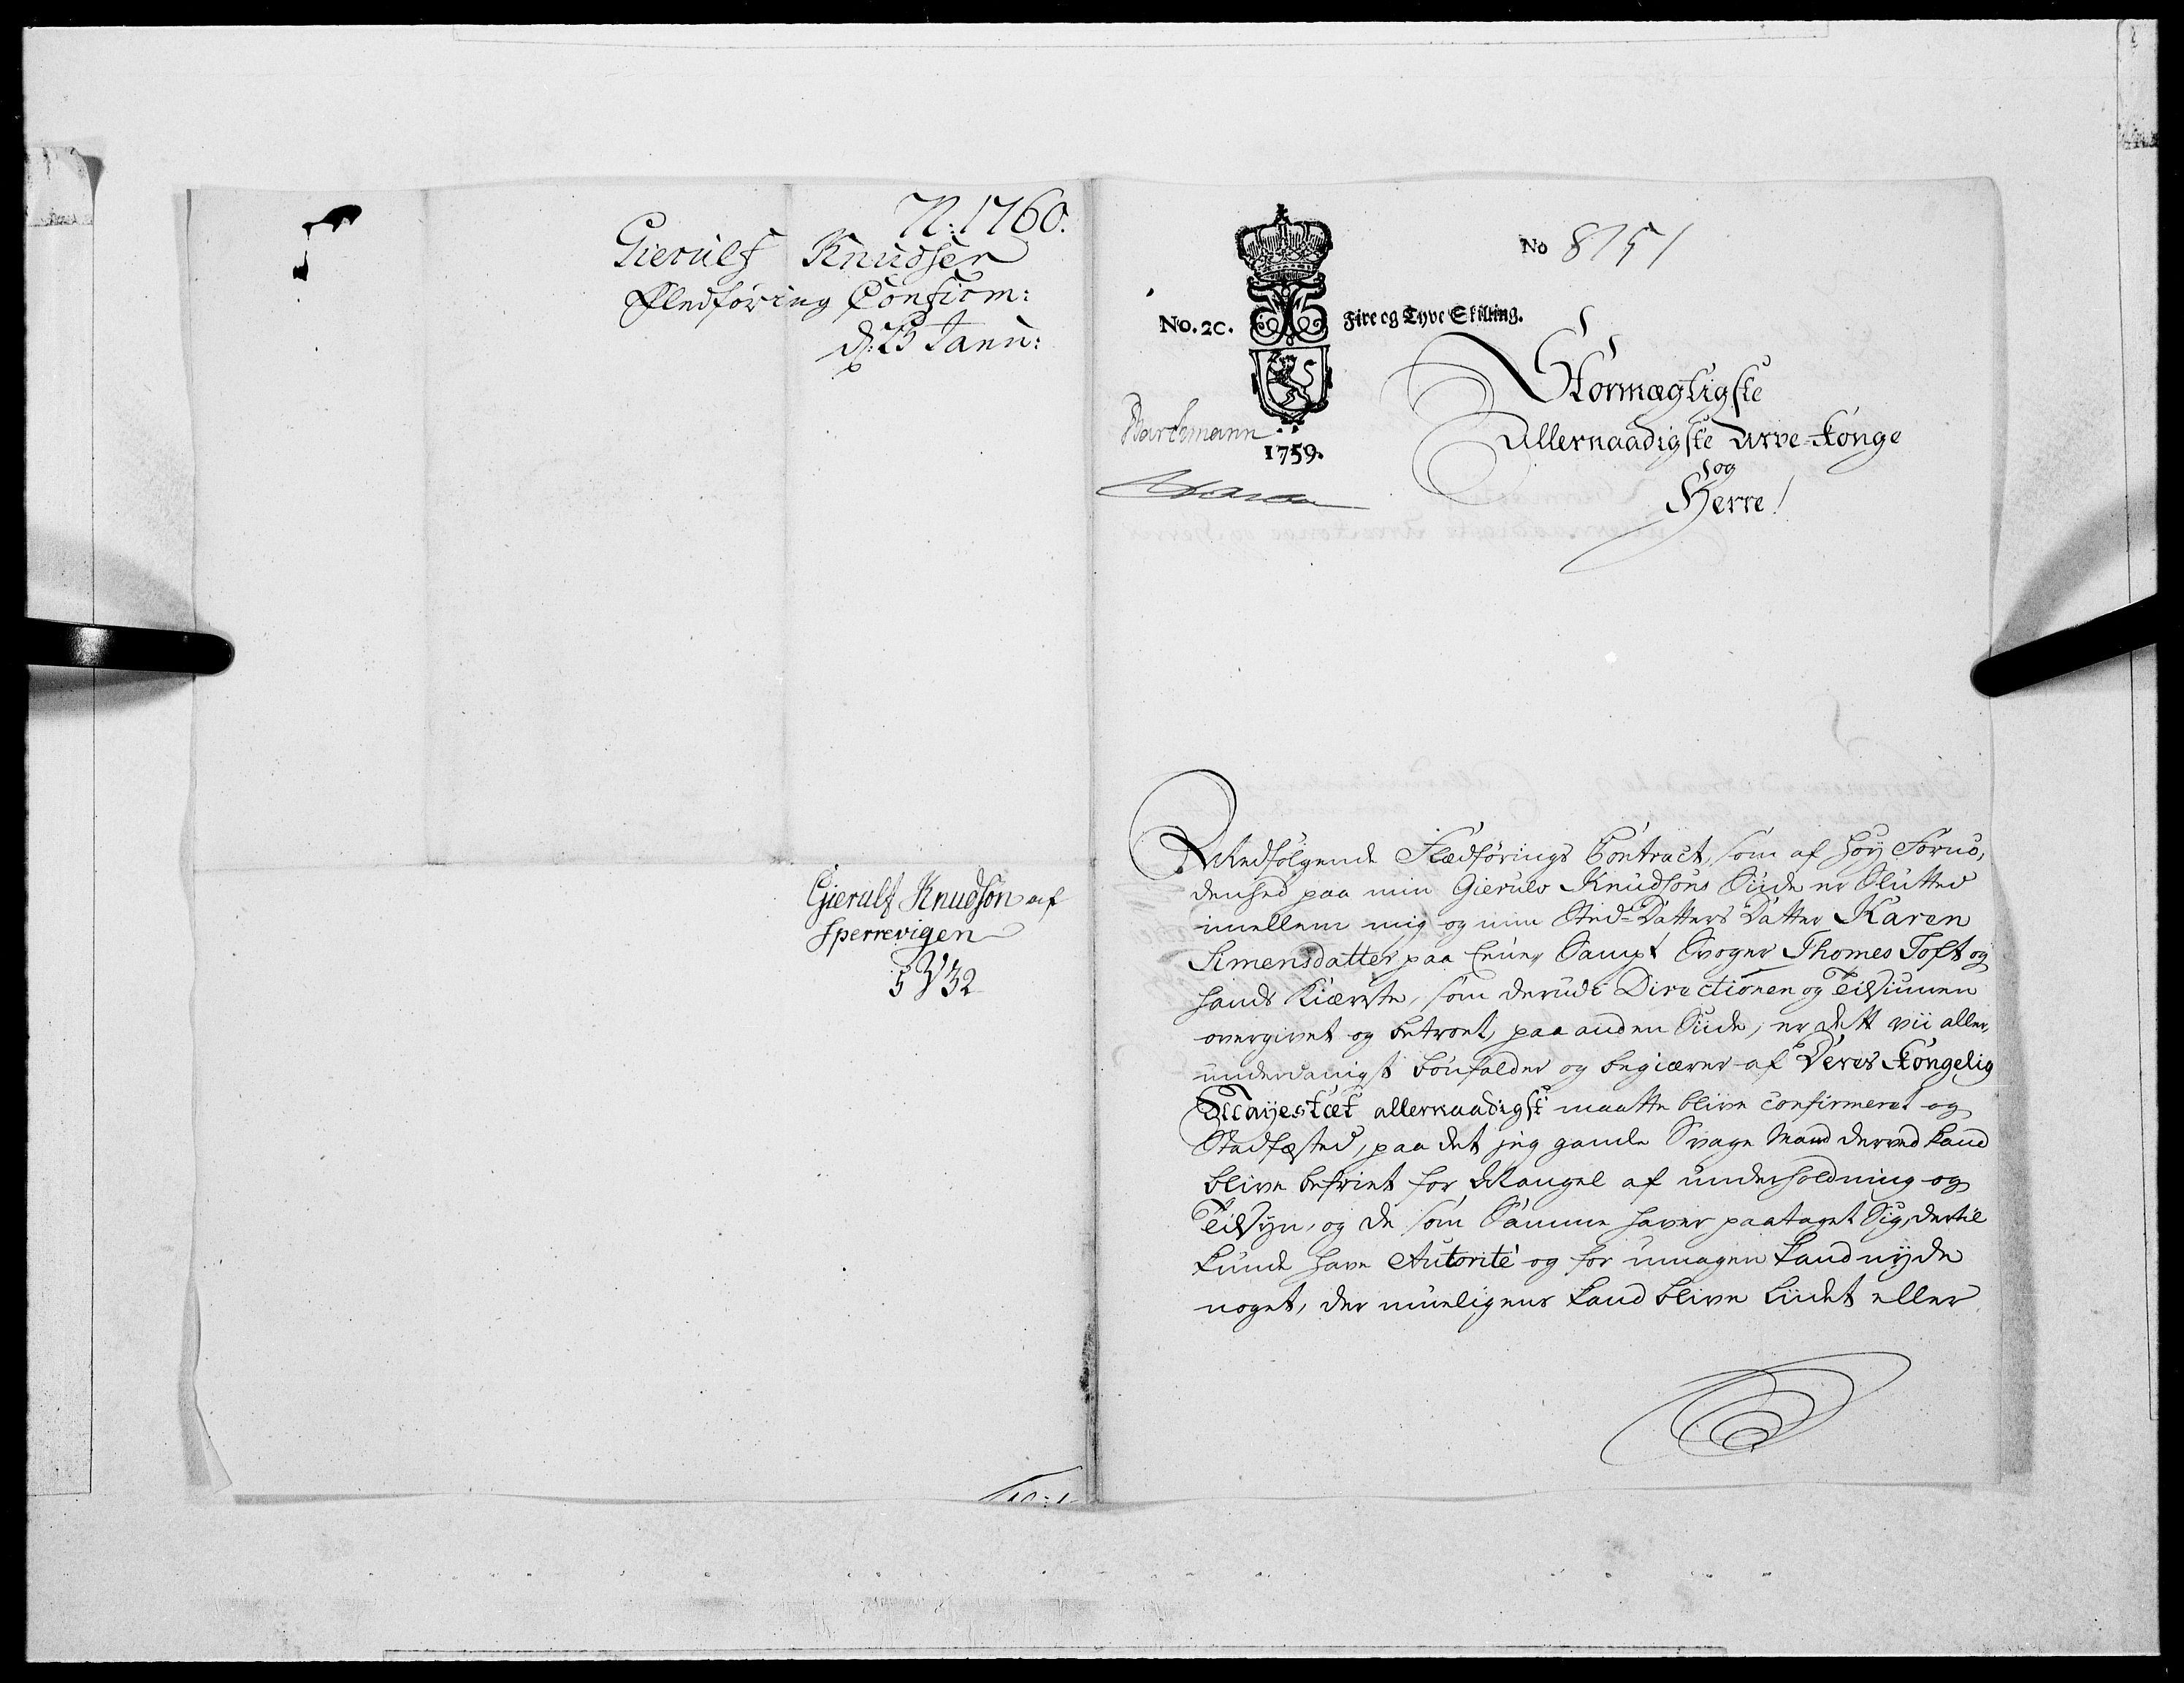 N: 1760.
Gierulf Knudsen
Fledføring Confirm:
d: 25 Janu:
Gierulf Knudsøn af
Sperrevigen
5 V 32
No 8751
No. 20. Fire og Tyve Skilling.
1759.
Bartemann
Stormægtigste
Allernaadigste Arve-Konge
og
Herre!
Medfølgende Flædførings Contract, som af høy Fornø,
denhed paa min Gierulv Knudsøns Siide er Slutted
imellem mig og min Sted-Datters Datter Karen
Simensdatter paa Eene, Sampt Svoger Thomes Toft og
hands Kiæreste, som derudi Directionen og Tilsiunen
overgivet og betroet, paa anden Siide, er dett vii aller,
underdanigst bønfalder og begiærer af Deres Kongelig
Mayestæt allernaadigst maatte blive confirmeret og
Stadfæsted, paa det jeg gamle Svage Mand derved kand
blive befriet for Mangel af underholdning og
Tilsyn, og de som Samme haver paataget Sig, dertil
kunde have Autorité og for umagen kand nyde
noget, der mueligens kand blive liidet eller